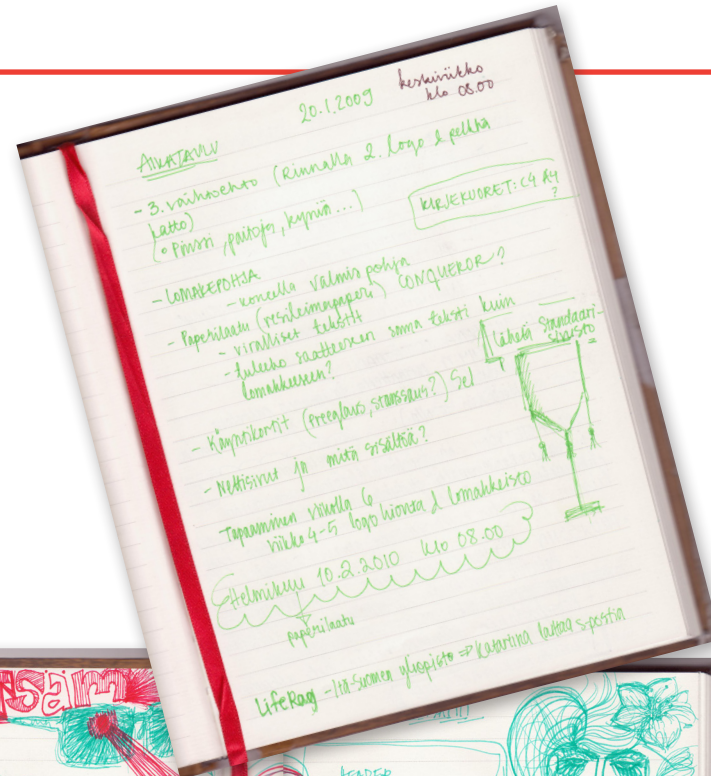 20.1.2009
keskiviikko
klo 08.00
AIKATAULU
- 3. vaihtoehto (Rinnalla 2. logo & pelkkä
katto)
(• Pinssi, paitoja, kyniä...)
KIRJEKUORET: C4 A4
?
- LOMAKEPOHJA
- koneella valmis pohja
- Paperilaatu (vesileimapaperi) CONQUEROR?
- viralliset tekstit
- tuleeko saatteeseen sama teksti kuin
lomakkeeseen?
Lähetä standaari-
- Käyntikortit (preeglaus, stanssaus?) Sel
- Nettisivut ja mitä sisältöä?
Tapaaminen viikolla 6
viikko 4-5 logo hionta & lomakkeisto
Helmikuu 10.2.2010 klo 08.00
paperilaatu
LifeRay - Itä-Suomen yliopisto => Katariina laittaa s-postia